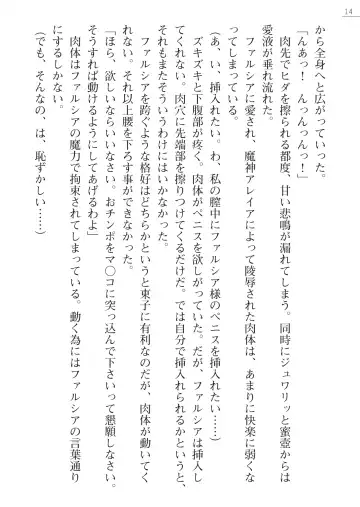 14
から全身へと広がっていった。
「んあっ！　んっんっんっ！」
　肉先でヒダを擦られる都度、甘い悲鳴が漏れてしまう。同時にジュワリッと蜜壺からは
愛液が垂れ流れた。
　ファルシアに愛され、魔神アレイアによって陵辱された肉体は、あまりに快楽に弱くな
ってしまっている。
（あ、い、挿入れたい。わ、私の膣中にファルシア様のペニスを挿入れたい……）
　ズキズキと下腹部が疼く。肉体がペニスを欲しがっていた。だが、ファルシアは挿入し
てくれない。肉穴に先端部を擦りつけてくるだけだ。では自分で挿入れられるかというと、
それもまたそういうわけにはいかなかった。
　ファルシアを跨ぐような格好はどちらかというと東子に有利なのだが、肉体が動いてく
れない。それ以上腰を下ろす事ができなかった。
「ほら、欲しいならいいなさい。おチンポをマ〇コに突っ込んで下さいって懇願しなさい。
そうすれば動けるようにしてあげるわよ」
　肉体はファルシアの魔力で拘束されてしまっている。動く為にはファルシアの言葉通り
にするしかない。
（でも、そんなの、は、恥ずかしい……）